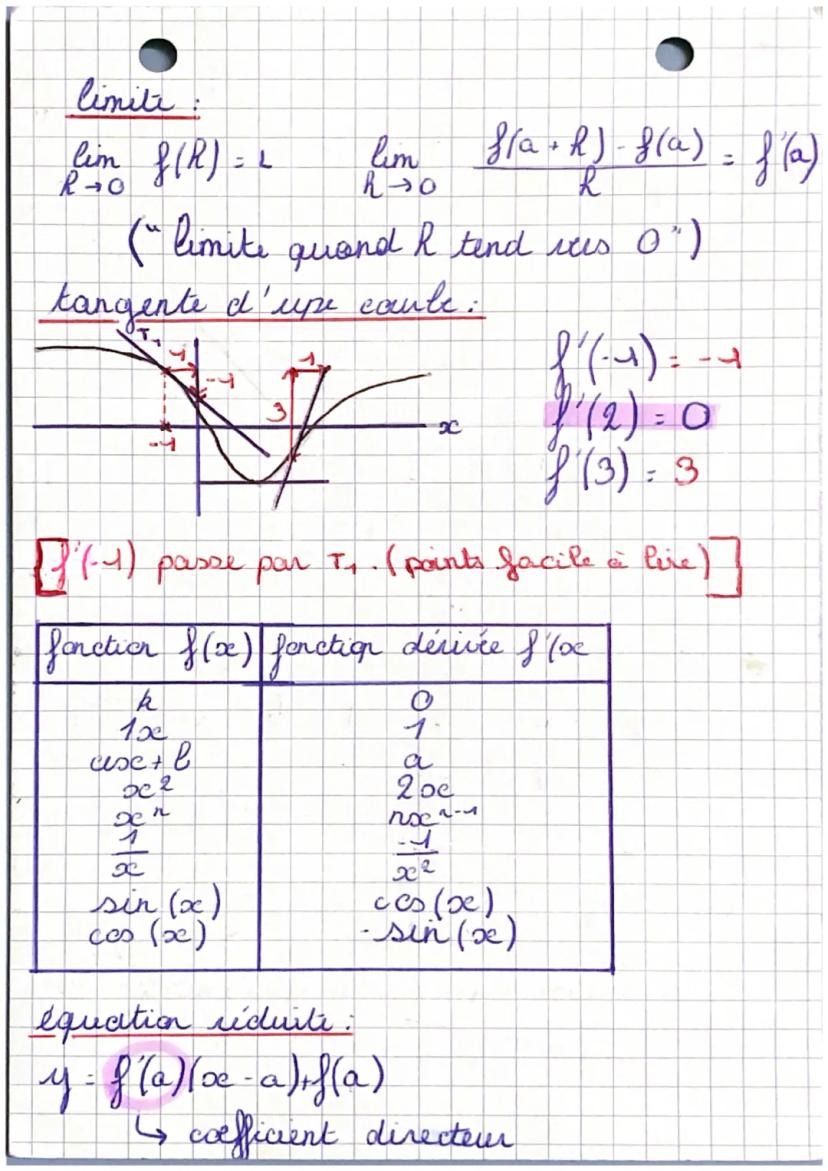 limite :
lim h→0 f(h) = L lim h→0 f(a + h) - f(a) / h = f'(a)
(" limite quand h tend vers 0 ")
tangente d'une courbe :
T₁ 1 -1 -1 3 1 x
f'(-1) = -1
f'(2) = 0
f'(3) = 3
[f'(-1) passe par T₁ . (points facile à lire)]
fonction f(x) fonction dérivée f'(x
k 0
1x 1
ax + b a
x² 2x
xⁿ nxⁿ⁻¹
1/x -1/x²
sin (x) cos (x)
cos (x) - sin (x)
équation réduite :
y = f'(a)(x - a)+f(a)
↳ coefficient directeur